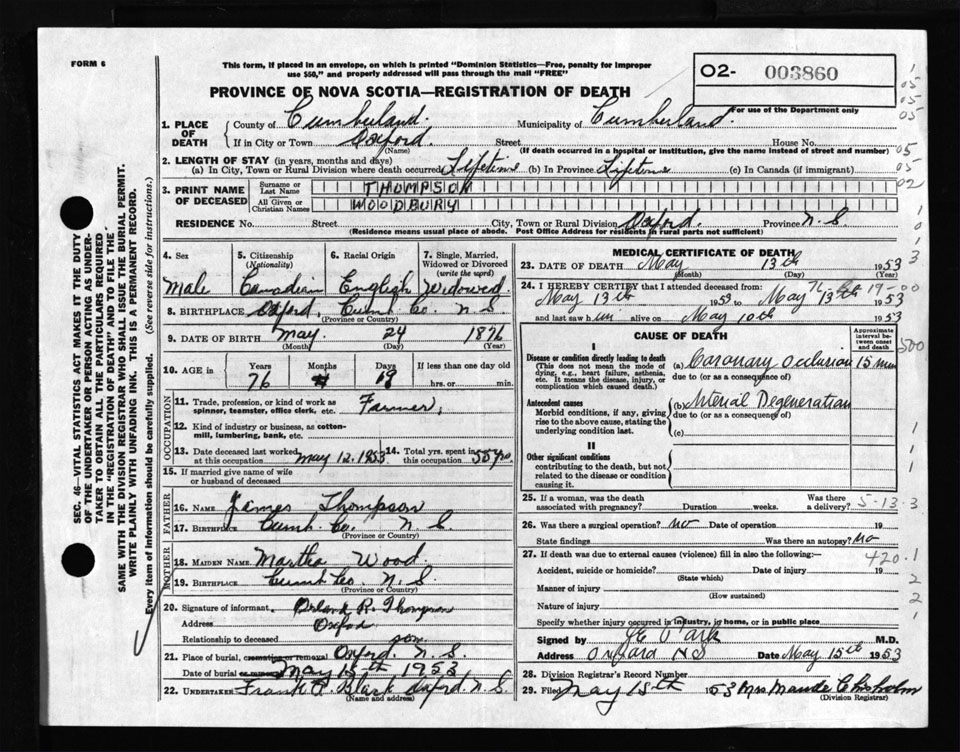 FORM 6
This form, if placed in an envelope, on which is printed "Dominion Statistics—Free, penalty for improper
use $50," and properly addressed will pass through the mail "FREE"
O2- 003860
For use of the Department only
PROVINCE OF NOVA SCOTIA—REGISTRATION OF DEATH
1. PLACE OF DEATH County of Cumberland. Municipality of Cumberland.
If in City or Town Oxford. Street House No.
(Name) (If death occurred in a hospital or institution, give the name instead of street and number)
2. LENGTH OF STAY (in years, months and days)
(a) In City, Town or Rural Division where death occurred Lifetime (b) In Province Lifetime (c) In Canada (if immigrant)
3. PRINT NAME OF DECEASED Surname or Last Name THOMPSON
All Given or Christian Names WOODBURY
RESIDENCE No. Street City, Town or Rural Division Oxford. Province N.S.
(Residence means usual place of abode. Post Office Address for residents in rural parts not sufficient)
4. Sex 5. Citizenship (Nationality) 6. Racial Origin 7. Single, Married, Widowed or Divorced (write the word)
Male Canadian English Widowed.
8. BIRTHPLACE Oxford, Cumb Co. N.S.
(Province or Country)
9. DATE OF BIRTH May. 24 1876
(Month) (Day) (Year)
10. AGE in Years Months Days If less than one day old
76 13 hrs. or min.
OCCUPATION
11. Trade, profession, or kind of work as
spinner, teamster, office clerk, etc. Farmer,
12. Kind of industry or business, as cotton-
mill, lumbering, bank, etc.
13. Date deceased last worked at this occupation May 12, 1953 14. Total yrs. spent in this occupation 55 yrs.
15. If married give name of wife
or husband of deceased
FATHER
16. Name James Thompson
17. Birthplace Cumb. Co. N.S.
(Province or Country)
MOTHER
18. MAIDEN NAME Martha Wood
19. BIRTHPLACE Cumb Co. N.S.
(Province or Country)
20. Signature of informant Orland R. Thompson
Address Oxford
Relationship to deceased son.
21. Place of burial, cremation or removal Oxford. N.S.
Date of burial or removal May 15th 1953
22. UNDERTAKER Frank P. Black Oxford N.S.
(Name and address)
MEDICAL CERTIFICATE OF DEATH
23. DATE OF DEATH May 13th 1953
(Month) (Day) (Year)
24. I HEREBY CERTIFY that I attended deceased from:
May 13th 1953 to May 13th 1953
and last saw him alive on May 10th 1953
CAUSE OF DEATH
Approximate interval between onset and death
I
Disease or condition directly leading to death
(This does not mean the mode of
dying, e.g., heart failure, asthenia,
etc. It means the disease, injury, or
complication which caused death.)
(a) Coronary Occlusion 15 min
due to (or as a consequence of)
Antecedent causes
Morbid conditions, if any, giving
rise to the above cause, stating the
underlying condition last.
(b) Arterial Degeneration
due to (or as a consequence of)
(c)
II
Other significant conditions
contributing to the death, but not
related to the disease or condition
causing it.
25. If a woman, was the death
associated with pregnancy? Duration weeks. Was there a delivery? 5-13-3
26. Was there a surgical operation? no Date of operation 19
State findings Was there an autopsy? No
27. If death was due to external causes (violence) fill in also the following:—
420.1
Accident, suicide or homicide? Date of injury 19
(State which)
Manner of injury
(How sustained)
Nature of injury
Specify whether injury occurred in industry, in home, or in public place
Signed by M.D.
Address Oxford NS Date May 15th 1953
28. Division Registrar's Record Number
29. Filed May 15th 1953 Mrs Maude Chisholm
(Division Registrar)
SEC. 46—VITAL STATISTICS ACT MAKES IT THE DUTY
OF THE UNDERTAKER OR PERSON ACTING AS UNDER-
TAKER TO OBTAIN ALL THE PARTICULARS REQUIRED
IN THE "REGISTRATION OF DEATH" AND TO FILE THE
SAME WITH THE DIVISION REGISTRAR WHO SHALL ISSUE THE BURIAL PERMIT.
WRITE PLAINLY WITH UNFADING INK. THIS IS A PERMANENT RECORD.
Every item of information should be carefully supplied. (See reverse side for instructions.)